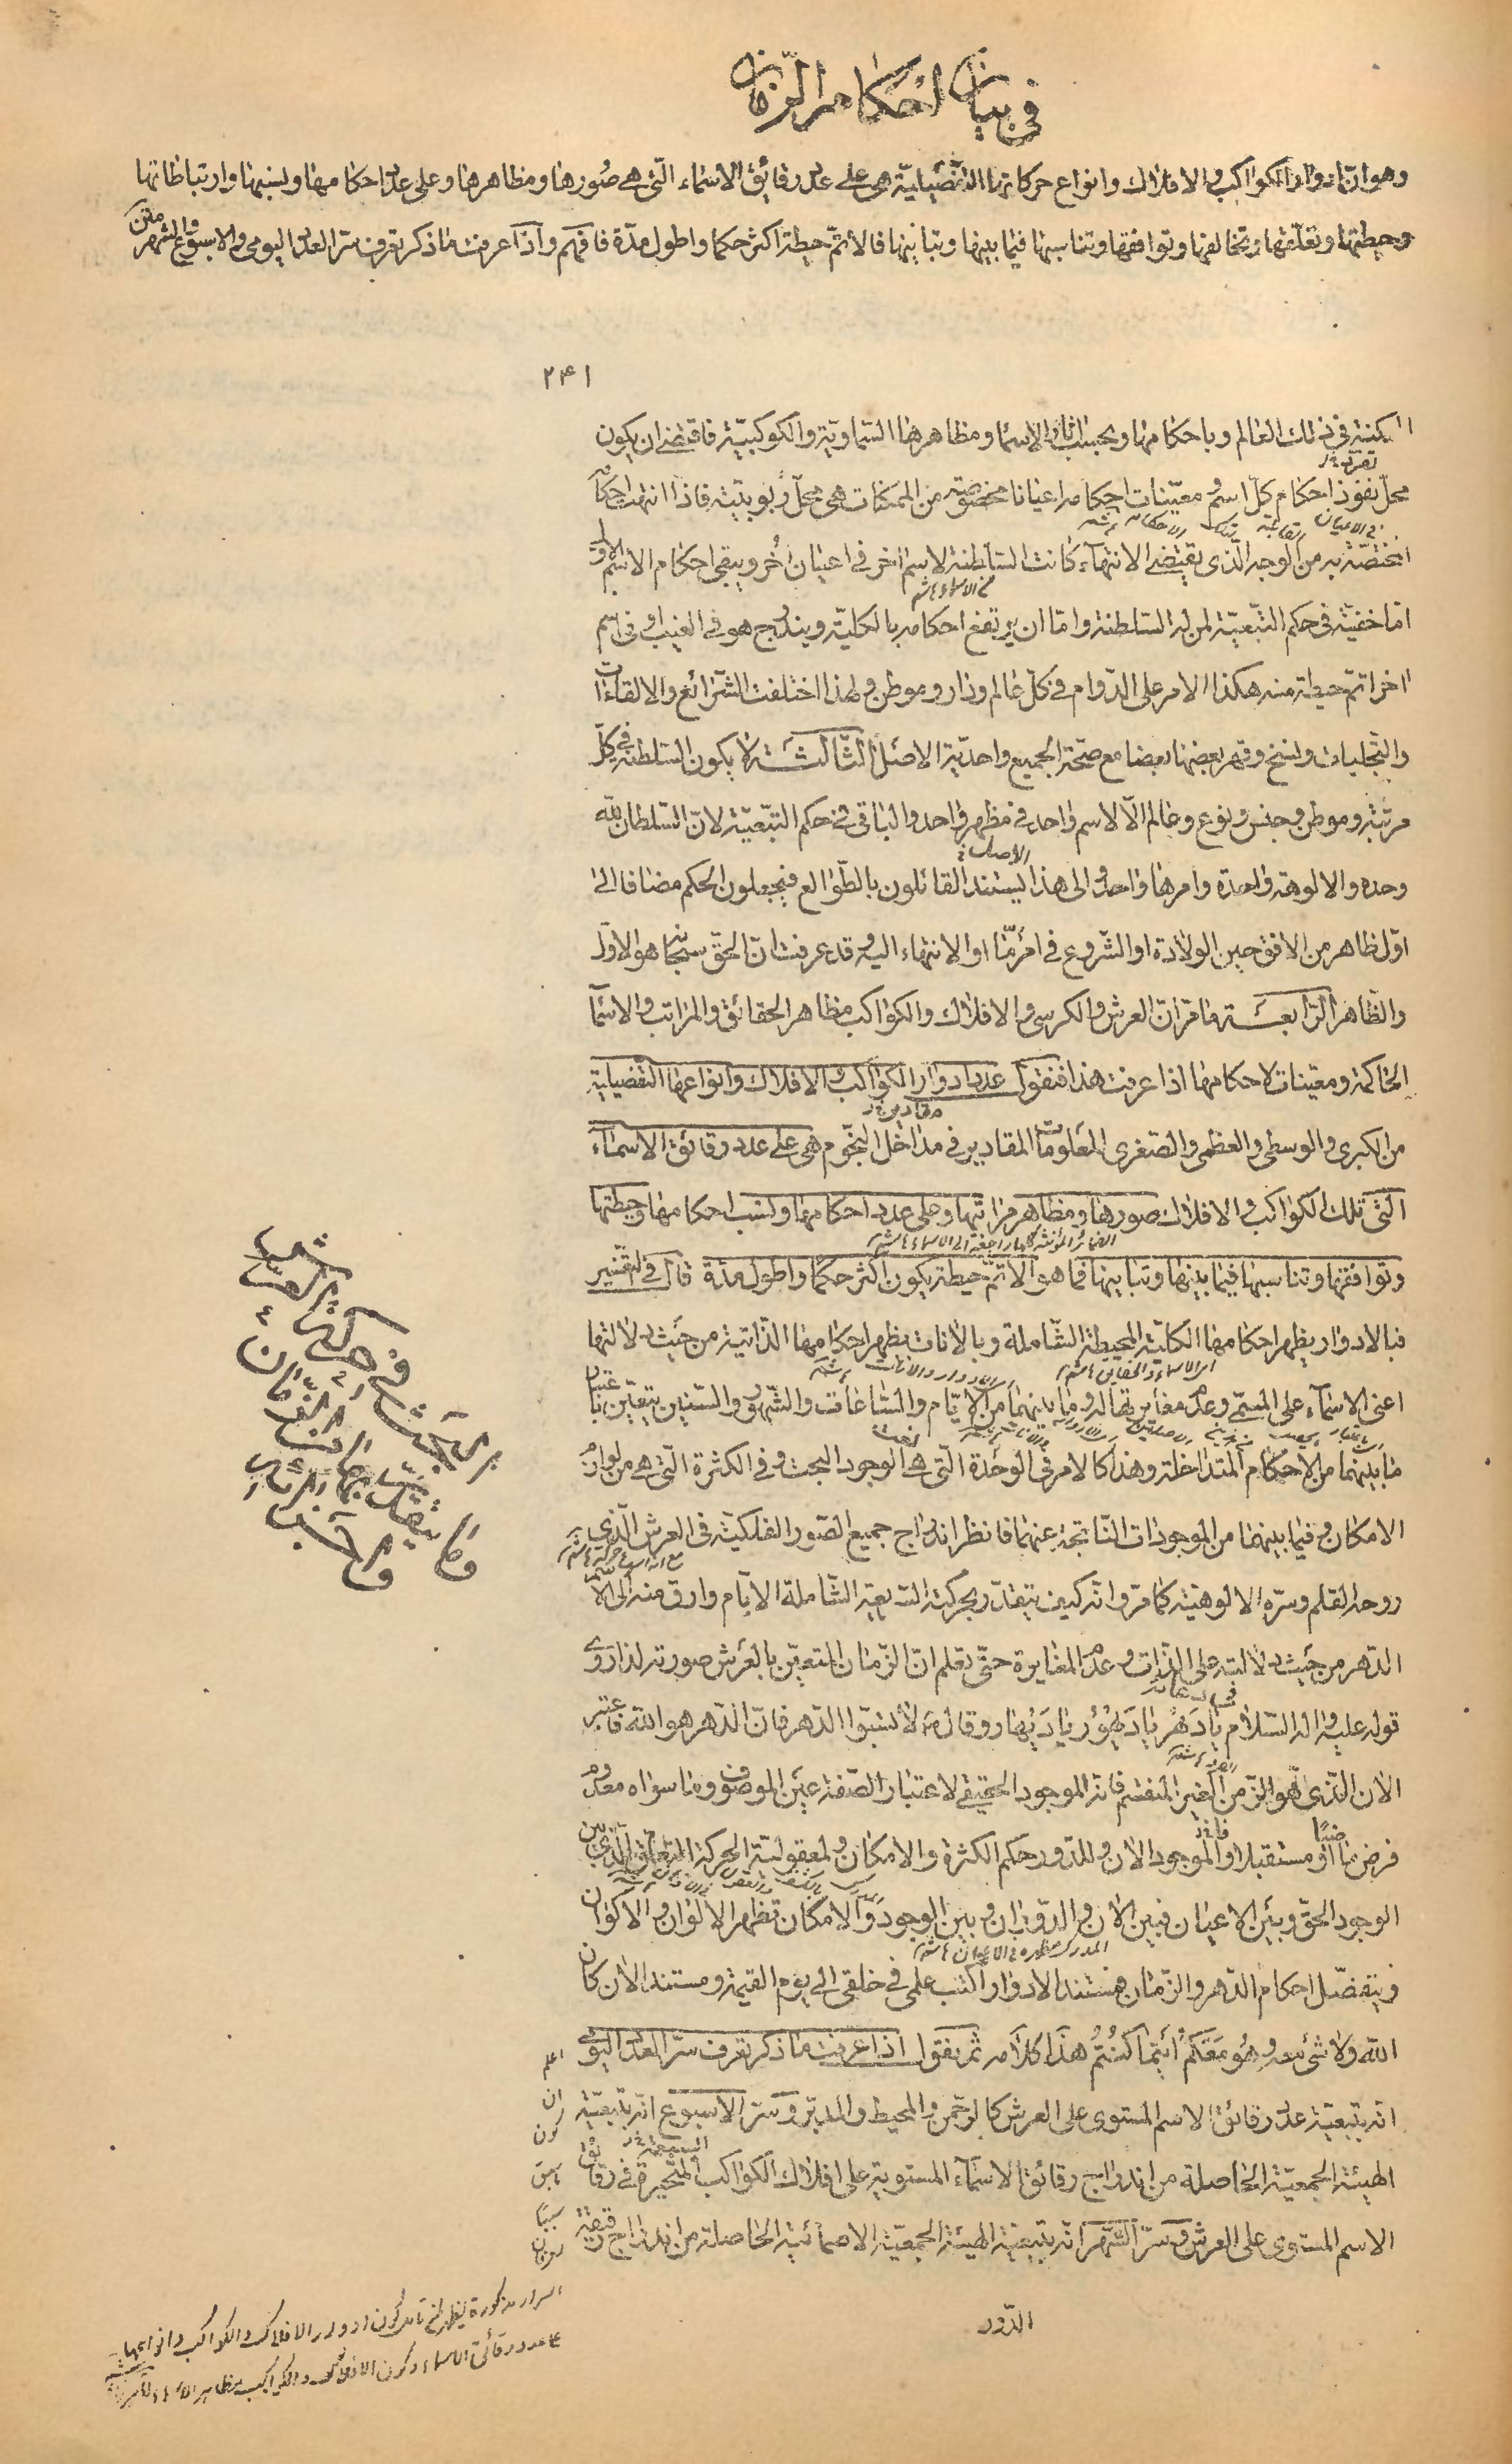 في بيان احكام الزمان
وهو انّ ادوار الكواكب والافلاك وانواع حركاتها التفضيليّة هى على عدد رقائق الاسماء التى هى صورها ومظاهرها وعلى عدد احكامها ونسبها وارتباطاتها
وحيطتها وتعلّقها وتخالفها وتوافقها وتناسبها فيما بينها وتباينها فالاتمّ حيطة اكثر حكما واطول مدّة فافهم واذا عرفت ما ذكر تعرف سرّ العدد اليومى والاسبوع والشهر متن
٢٤١
فى ذلك العالم وباحكامها وبحسب اثار الاسما ومظاهرها السّماويّة والكوكبيّة فاقتضى ان يكون
محلّ نفوذ احكام كلّ اسم ومعيّنات احكامه اعيانا مخصوصة من الممكنات هى محلّ ربوبيّته فاذا انتهت احكامه
المختصّة به من الوجه الّذى يقتضى الانتهاء كانت السّلطنة لاسم اخر فى اعيان أُخر ويبقى احكام الاسم الاوّل
امّا خفيّة فى حكم التّبعيّة لمن له السّلطنة وامّا ان يرتفع احكامه بالكليّة ويندرج هو فى الغيب او فى اسم
اخر اتمّ حيطة منه هكذا الامر على الدّوام فى كلّ عالم ودار وموطن ولهذا اختلفت الشّرائع والالقاءات
والتّجليات ونسخ وقهر بعضها بعضا مع صحّة الجميع واحديّة الاصل الثّالثة لا يكون السّلطنة فى كلّ
مرتبة وموطن وجنس ونوع وعالم الّا لاسم واحد فى مظهر واحد والباقى فى حكم التّبعيّة لانّ السّلطان لله
وحده والالوهة واحدة وامرها واحد والى هذا الاصل يستند القائلون بالطّوالع فيجعلون الحكم مضافا الى
اوّل ظاهر من الافق حين الولادة او الشّروع فى امر مّا او الانتهاء اليه وقد عرفت انّ الحقّ سبحانه هو الاوّل
والظّاهر الرّابعة ما مرّ انّ العرش والكرسى والافلاك والكواكب مظاهر الحقائق والمراتب والاسما
الحاكمة ومعيّنات لاحكامها اذا عرفت هذا فنقول عدد ادوار الكواكب والافلاك وانواعها التّفضيلية
من الكبرى والوسطى والعظمى والصّغرى المعلومات المقادير فى مداخل النّجوم هى على عدد رقائق الاسماء
التى تلك الكواكب والافلاك صورها ومظاهر مراتبها وعلى عدد احكامها ونسب احكامها وحيطتها
الضمائر المؤنثة كلها راجعة الى الاسماء
وتوافقها وتناسبها فيما بينها وتباينها فما هو الاتمّ حيطة يكون اكثر حكما واطول مدّة قال فى التّفسير
فبالادوار يظهر احكامها الكليّة المحيطة الشّاملة وبالانات يظهر احكامها الذّاتية من حيث دلالتها
اعنى الاسماء على المسمّى وعدم مغايرتها له وما بينهما من الايّام والسّاعات والشّهور والسّنين يتعيّن باعتبار
ما بينهما من الاحكام المتداخلة وهذا كالامر فى الوحدة الّتى هى الوجود البحت وفى الكثرة الّتى هى من لوازم
الامكان وفيما بينهما من الموجودات النّاتجة عنهما فانظر اندراج جميع الصّور الفلكيّة فى العرش الّذى
روحه القلم وسرّه الالوهيّة كما مرّ وانّه كيف يتقدّر بحركته السّريعة الشّاملة الايّام وارق منه الى الاسم
الدّهر من حيث دلالته على الذّات وعدم المغايرة حتّى تعلم انّ الزّمان المتعيّن بالعرش صورته لذا روى
قوله عليه واله السّلام يا دَهْر يا دَيهُور يا دَيهار وقال صَ لا تسبّوا الدّهر فانّ الدّهر هو الله فاعتبر
الان الّذى هو الزّمن الغير المنقسم فانّه الموجود الحقيقى لاعتبار الصّفة عين الموصوف وما سواه معدوم
فرض ماضيًا او مستقبلا فللموجود الان وللدّور حكم الكثرة والامكان ولمعقوليّة الحركة التّعلّق الّذى بين
الوجود الحقّ وبين الاعيان فبين الان والدّوران وبين الوجود والامكان تظهر الالوان والاكوان
ويتفصّل احكام الدّهر والزّمان فمستند الادوار اكتب علمى فى خلقى الى يوم القيمة ومستند الان كان
الله ولا شىء معه وهُوَ مَعَكُمْ أَيْنَما كُنْتُمْ هذا كلامه ثمّ نقول اذا عرفت ما ذكر تعرف سرّ العدد اليومى
انّه بتبعيّة عدد رقائق الاسم المستوى على العرش كالرحمن والمحيط والمدبّر وسرّ الاسبوع انّه بتبعيّة
الهيئة الجمعيّة الحاصلة من اندراج رقائق الاسماء المستوية على افلاك الكواكب السبعة المتحيرة فى رقائق
الاسم المستوى على العرش وسرّ الشّهر انّه بتبعيّة الهيئة الجمعيّة الاسمائية الحاصلة من اندراج رقيقة
الدّور
بحث فى حركة العرش
وما يتقدّر بها من الزّمان
اعلم
ان
كون
اسرار مذكورة يظهر لمن تامل كون ادوار الافلاك والكواكب وانواعها
عدد رقائق الاسماء وكون الافلاك والكواكب مظاهر